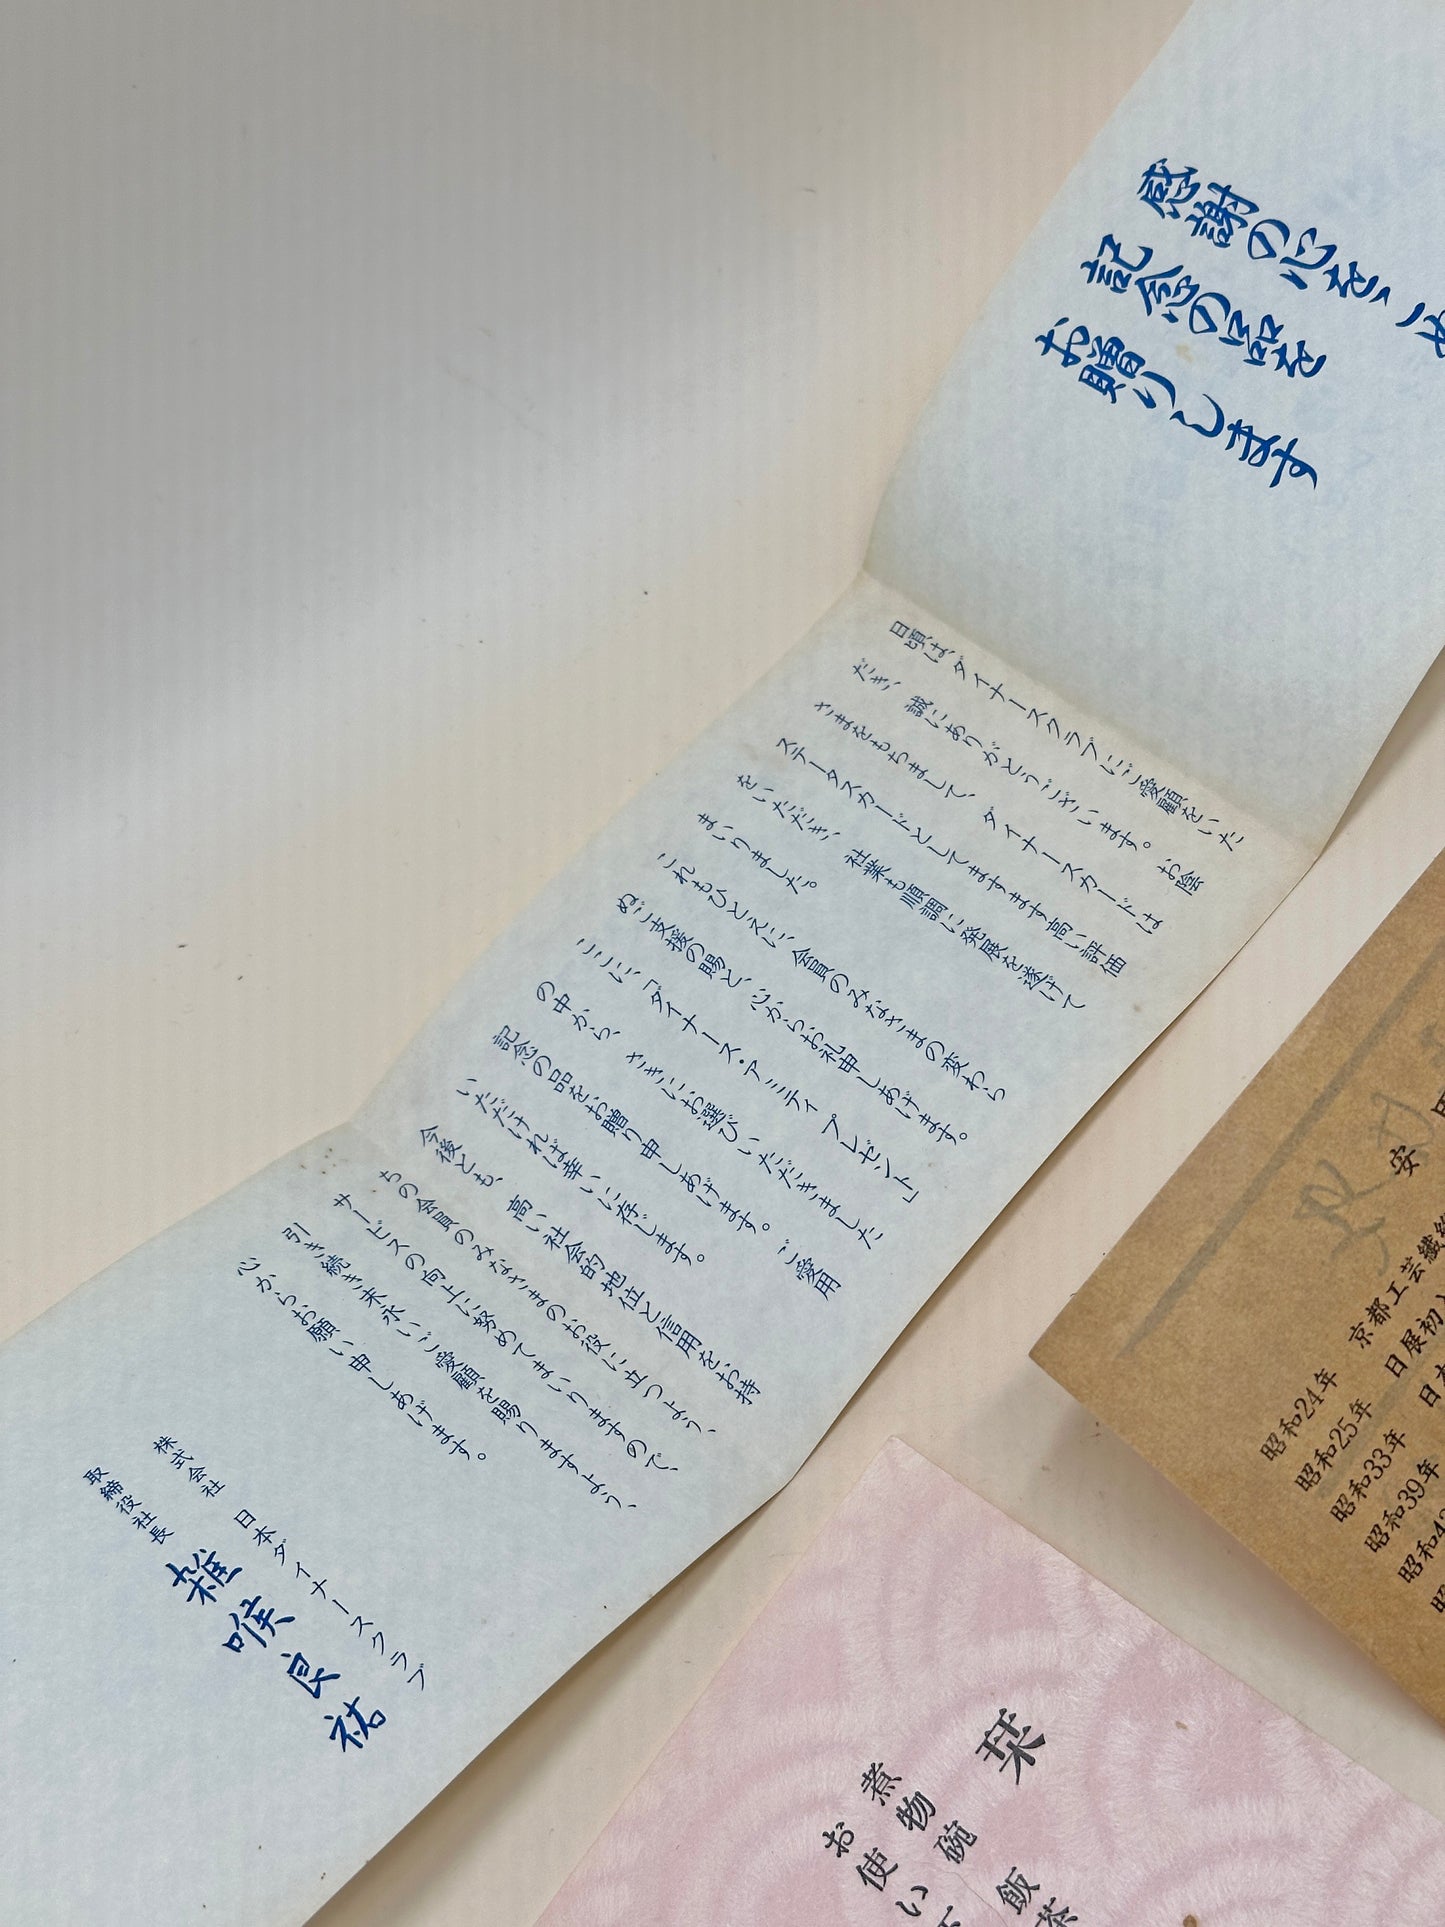 感謝の心を、こめ
記念の品を
お贈りします
日頃は、ダイナースクラブにご愛顧をいた
だき、誠にありがとうございます。お陰
さまをもちまして、ダイナースカードは
ステータスカードとしてますます高い評価
をいただき、社業も順調に発展を遂げて
まいりました。
これもひとえに、会員のみなさまの変わら
ぬご支援の賜と、心からお礼申しあげます。
ここに、「ダイナース・アミティ プレゼント」
の中から、さきにお選びいただきました
記念の品を、お贈り申しあげます。ご愛用
いただければ幸いに存じます。
今後とも、高い社会的地位と信用をお持
ちの会員のみなさまのお役に立つよう、
サービスの向上に努めてまいりますので、
引き続き末永いご愛顧を賜りますよう、
心からお願い申しあげます。
株式会社 日本ダイナースクラブ
取締役社長 雑喉良祐
安
京都工芸繊維
昭和24年 日展初入
昭和25年 日本
昭和33年
昭和39年
昭和4
栞
飯茶
煮物碗
お使い